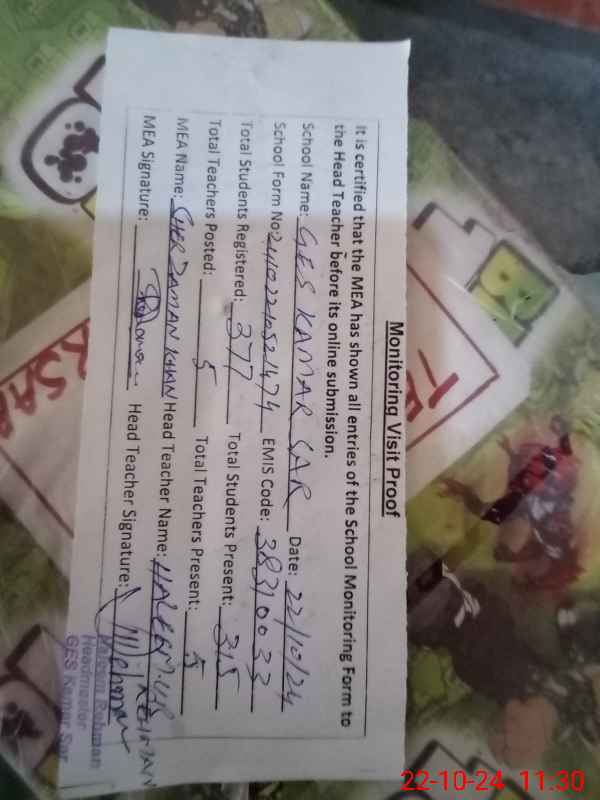 Monitoring Visit Proof
It is certified that the MEA has shown all entries of the School Monitoring Form to
the Head Teacher before its online submission.
School Name: GES KAMAR SAR Date: 22/10/24
School Form No: 2410221052474 EMIS Code: 38310033
Total Students Registered: 377 Total Students Present: 315
Total Teachers Posted: 5 Total Teachers Present: 5
MEA Name: SHER ZAMAN KHAN Head Teacher Name: HALEEM.UR REHMAN
MEA Signature: Head Teacher Signature:
Haleem Rehman
Headmaster
GES Kamar Sar
KSAR
22-10-24 11:30